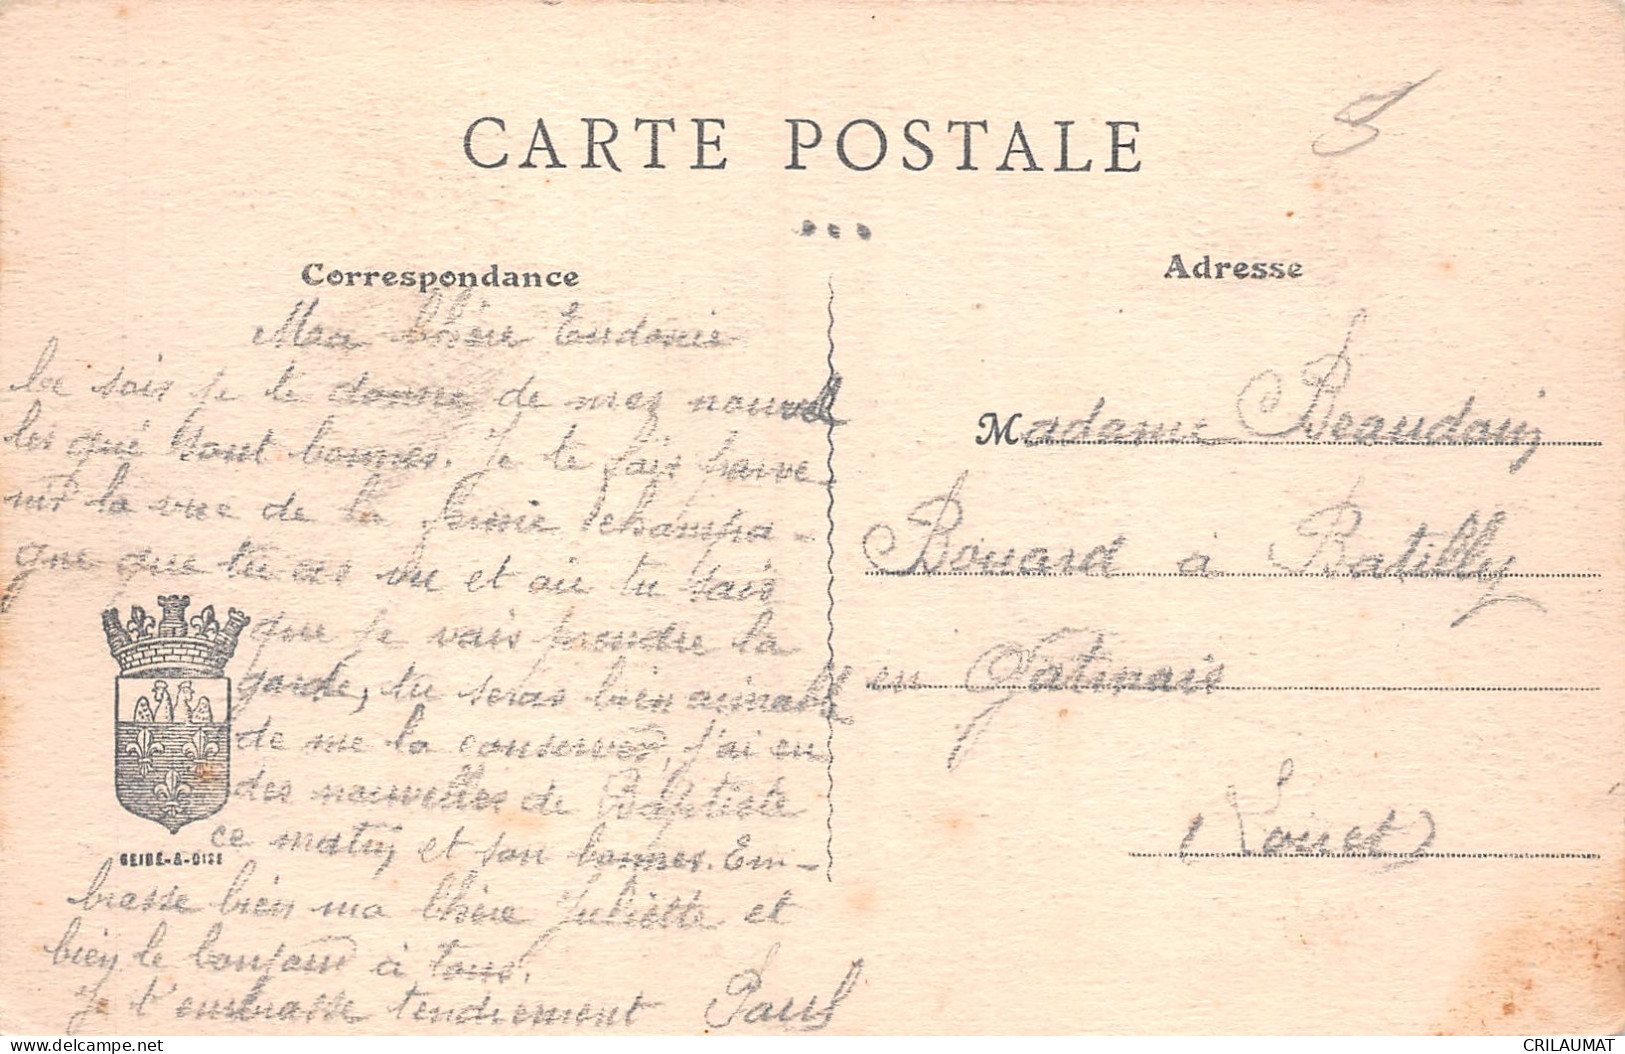 CARTE POSTALE
Correspondance
Adresse
Ma Chère
Ce soir je te donne de mes nouvel
les qui sont bonnes. Je te fais parve
nir la vue de la ferme Champa-
gne que tu as vu et où tu sais
que je vais prendre la
garde, tu seras bien aimable
de me la conserver, j'ai eu
des nouvelles de Baptiste
ce matin et son bonnes. Em-
brasse bien ma Chère Juliette et
bien le bonjour à tous.
Je t'embrasse tendrement Paul
SEINE-&-OISE
Madame Beaudoin
Bouard à Batilly
en Gatinais
(Loiret)
CRILAUMAT